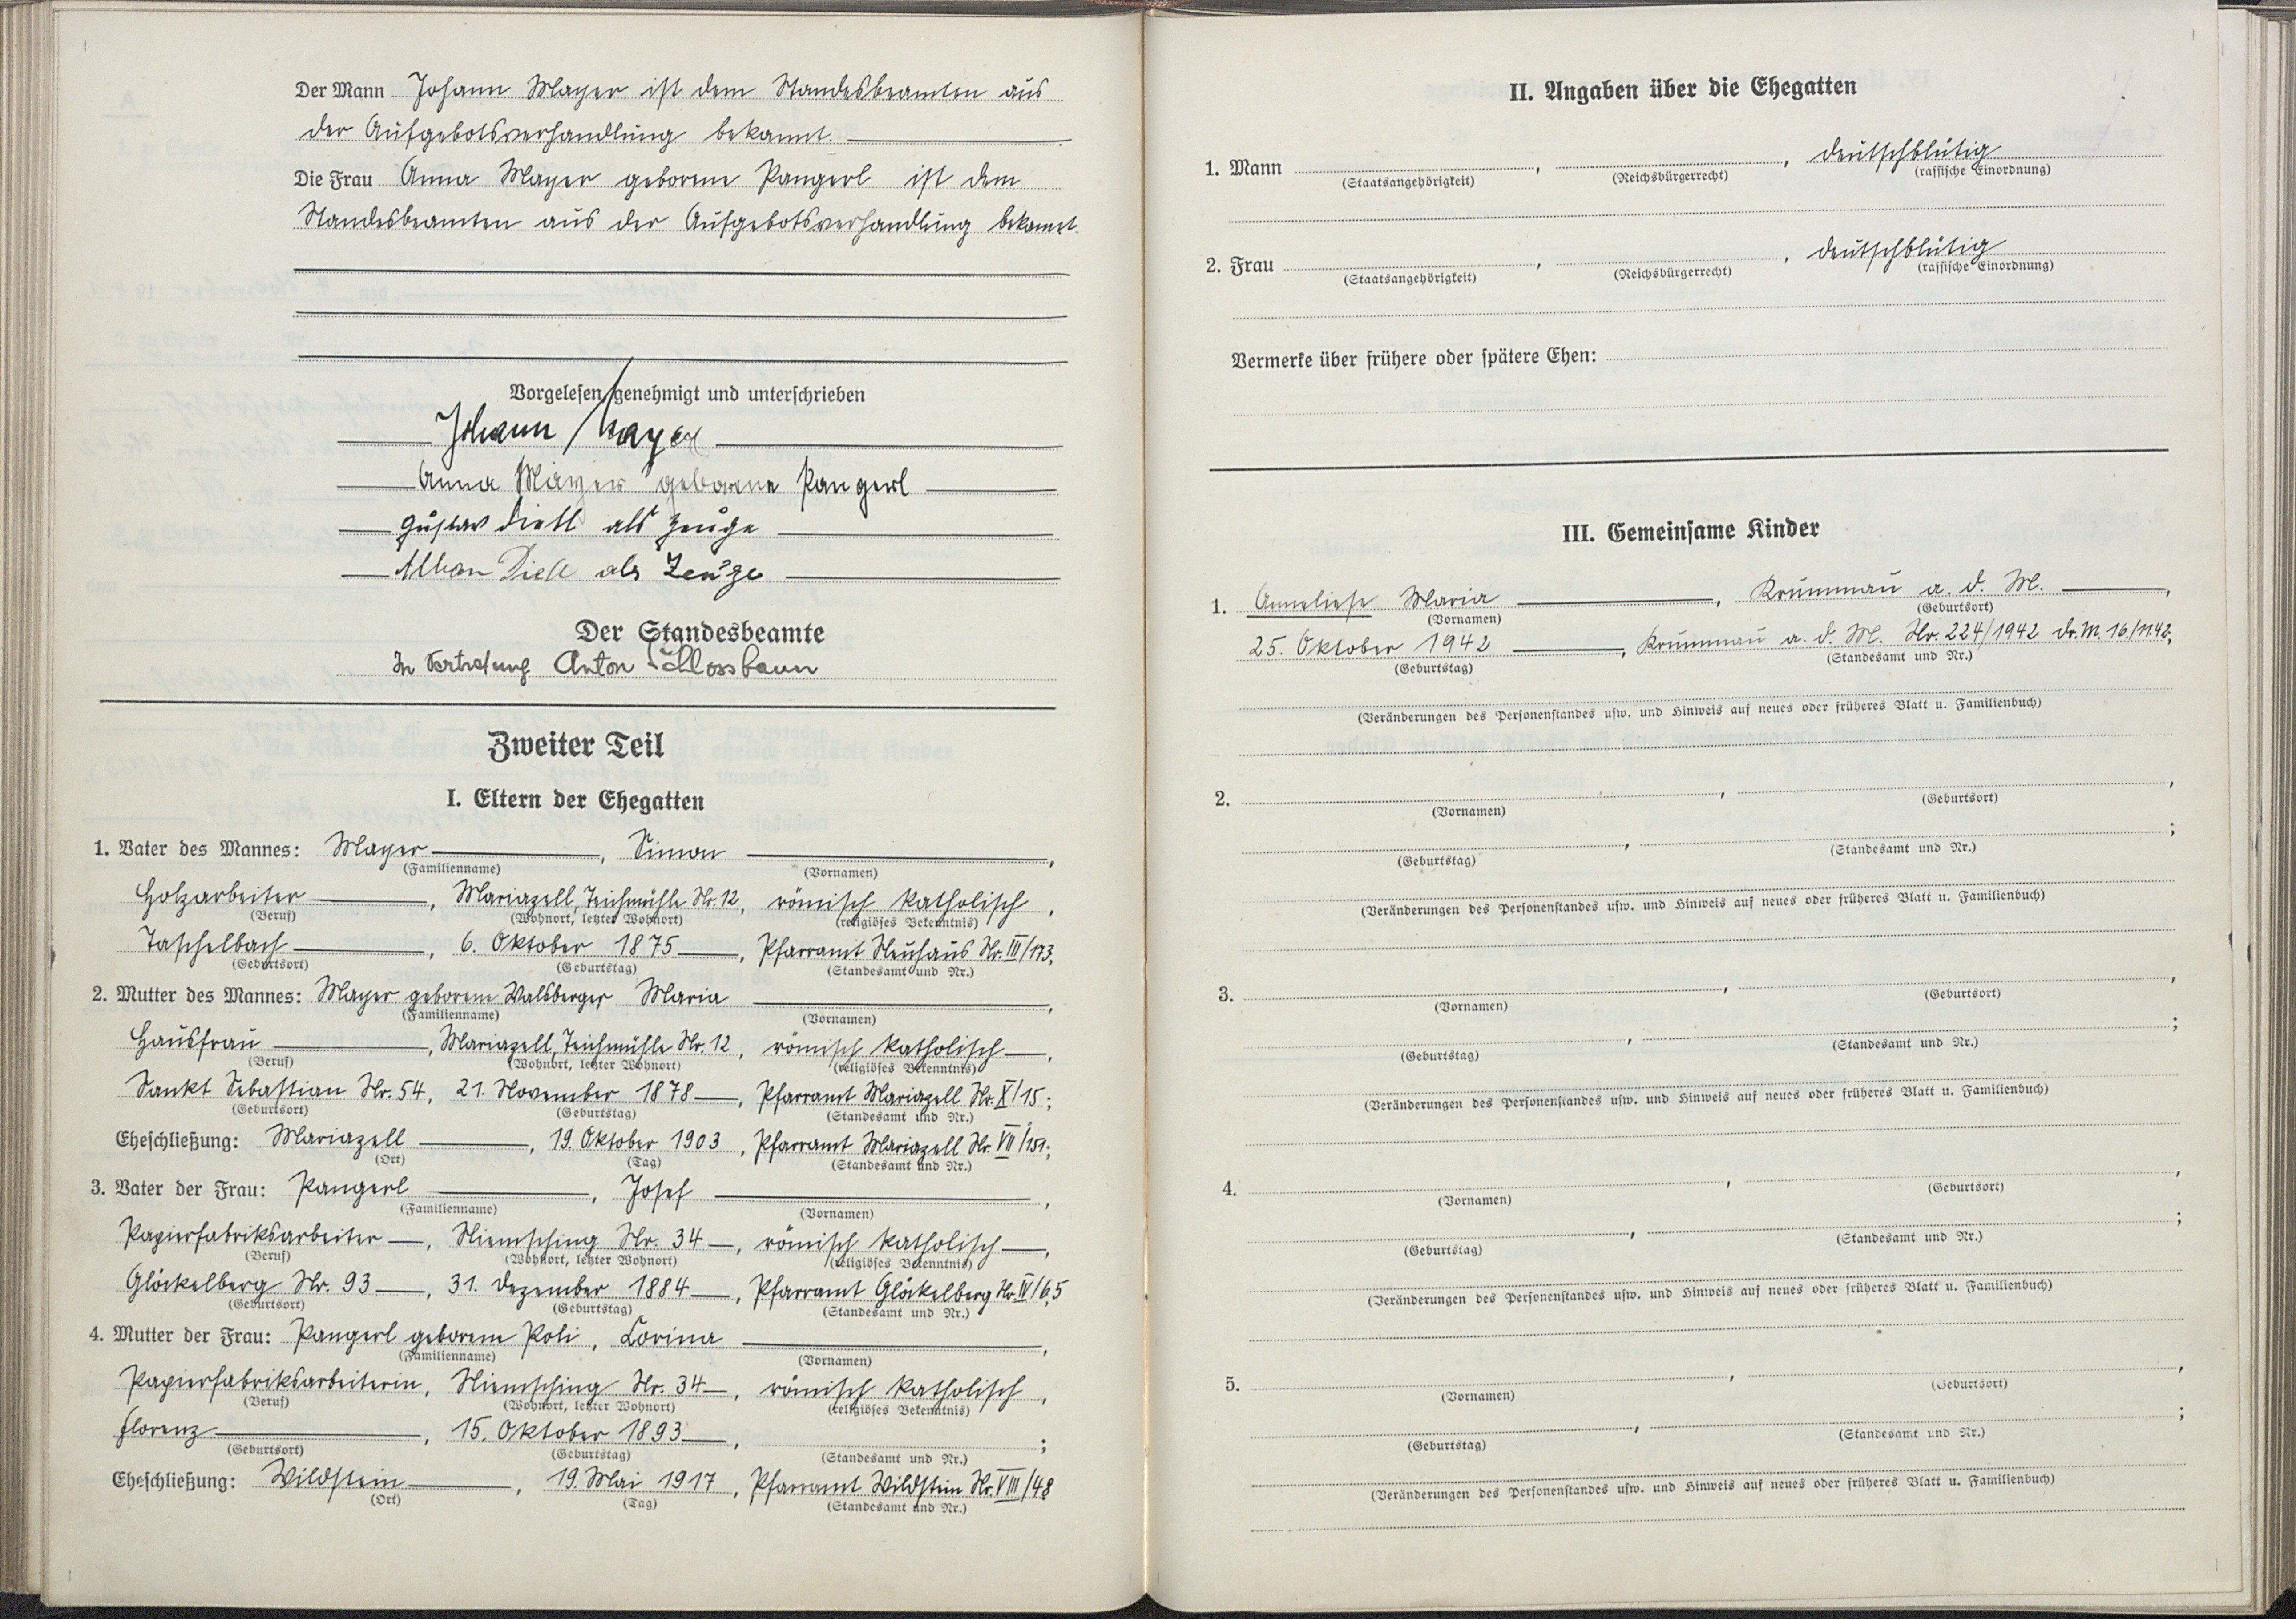 Der Mann Johann Mayer ist dem Standesbeamten aus
der Aufgebotsverhandlung bekannt.
Die Frau Anna Mayer geborene Pangerl ist dem
Standesbeamten aus der Aufgebotsverhandlung bekannt.
Vorgelesen, genehmigt und unterschrieben
Johann Mayer
Anna Mayer geborene Pangerl
Gustav Dietl als Zeuge
als Zeuge
Der Standesbeamte
In Vertretung Anton Schlossbaur
Zweiter Teil
I. Eltern der Ehegatten
1. Vater des Mannes: Mayer, Simon,
(Familienname) (Vornamen)
Holzarbeiter, Mariazell, Teichmühle Nr. 12, römisch katholisch,
(Beruf) (Wohnort, letzter Wohnort) (religiöses Bekenntnis)
Taschelbach, 6. Oktober 1875, Pfarramt Neuhaus Nr. III/173;
(Geburtsort) (Geburtstag) (Standesamt und Nr.)
2. Mutter des Mannes: Mayer geborene Walsberger Maria,
(Familienname) (Vornamen)
Hausfrau, Mariazell, Teichmühle Nr. 12, römisch katholisch,
(Beruf) (Wohnort, letzter Wohnort) (religiöses Bekenntnis)
Sankt Sebastian Nr. 54, 21. November 1878, Pfarramt Mariazell Nr. X/15;
(Geburtsort) (Geburtstag) (Standesamt und Nr.)
Eheschließung: Mariazell, 19. Oktober 1903, Pfarramt Mariazell Nr. VII/151;
(Ort) (Tag) (Standesamt und Nr.)
3. Vater der Frau: Pangerl, Josef,
(Familienname) (Vornamen)
Papierfabriksarbeiter, Niemsching Nr. 34, römisch katholisch,
(Beruf) (Wohnort, letzter Wohnort) (religiöses Bekenntnis)
Glöckelberg Nr. 93, 31. Dezember 1884, Pfarramt Glöckelberg Nr. IV/65
(Geburtsort) (Geburtstag) (Standesamt und Nr.)
4. Mutter der Frau: Pangerl geborene Poli, Corina,
(Familienname) (Vornamen)
Papierfabriksarbeiterin, Niemsching Nr. 34, römisch katholisch,
(Beruf) (Wohnort, letzter Wohnort) (religiöses Bekenntnis)
Florenz, 15. Oktober 1893, ;
(Geburtsort) (Geburtstag) (Standesamt und Nr.)
Eheschließung: Wildstein, 19. Mai 1917, Pfarramt Wildstein Nr. VIII/48
(Ort) (Tag) (Standesamt und Nr.)
II. Angaben über die Ehegatten
1. Mann , , deutschblütig
(Staatsangehörigkeit) (Reichsbürgerrecht) (rassische Einordnung)
2. Frau , , deutschblütig
(Staatsangehörigkeit) (Reichsbürgerrecht) (rassische Einordnung)
Vermerke über frühere oder spätere Ehen:
III. Gemeinsame Kinder
1. Anneliese Maria, Krummau a. d. M.,
(Vornamen) (Geburtsort)
25. Oktober 1942, Krummau a. d. M. Nr. 224/1942 Dr. M. 16./11.42;
(Geburtstag) (Standesamt und Nr.)
(Veränderungen des Personenstandes usw. und Hinweis auf neues oder früheres Blatt u. Familienbuch)
2. , ,
(Vornamen) (Geburtsort)
, ;
(Geburtstag) (Standesamt und Nr.)
(Veränderungen des Personenstandes usw. und Hinweis auf neues oder früheres Blatt u. Familienbuch)
3. , ,
(Vornamen) (Geburtsort)
, ;
(Geburtstag) (Standesamt und Nr.)
(Veränderungen des Personenstandes usw. und Hinweis auf neues oder früheres Blatt u. Familienbuch)
4. , ,
(Vornamen) (Geburtsort)
, ;
(Geburtstag) (Standesamt und Nr.)
(Veränderungen des Personenstandes usw. und Hinweis auf neues oder früheres Blatt u. Familienbuch)
5. , ,
(Vornamen) (Geburtsort)
, ;
(Geburtstag) (Standesamt und Nr.)
(Veränderungen des Personenstandes usw. und Hinweis auf neues oder früheres Blatt u. Familienbuch)